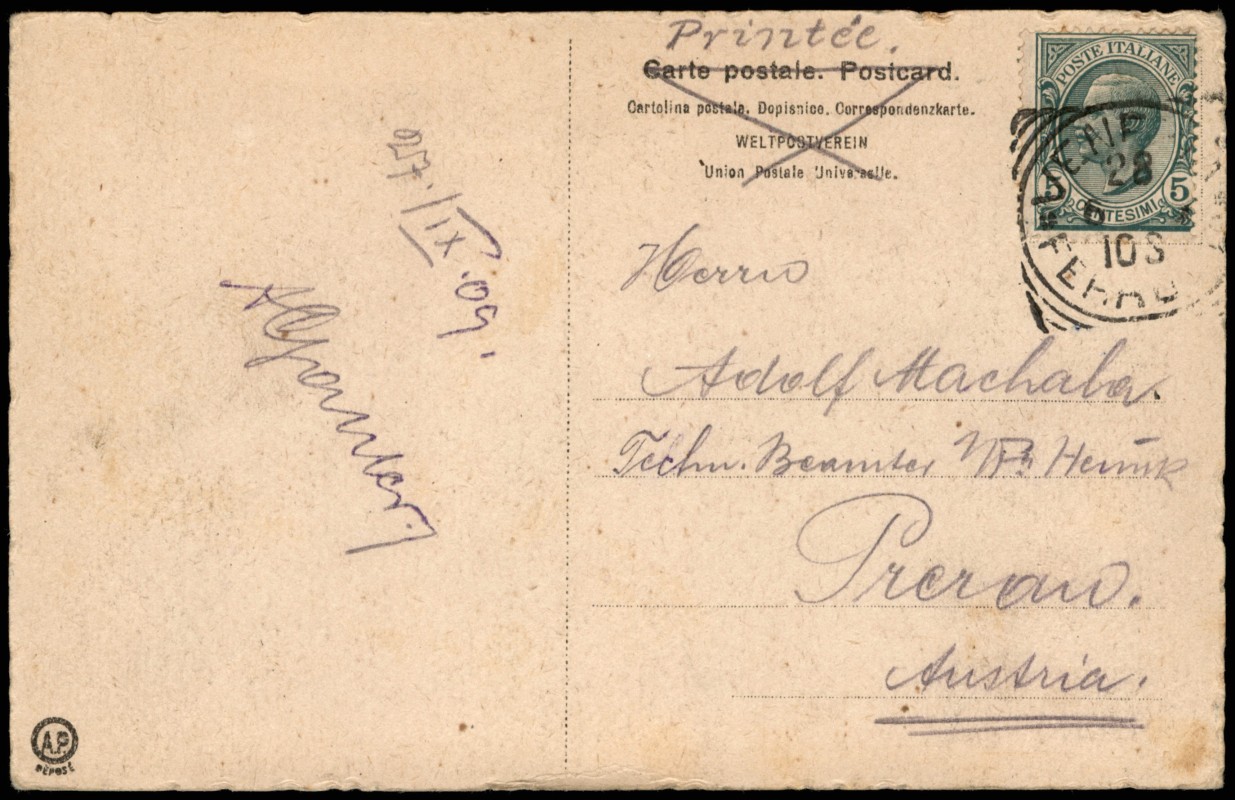 Printée.
Carte postale. Postcard.
Cartolina postale. Dopisnice. Correspondenzkarte.
WELTPOSTVEREIN
Union Postale Universelle.
POSTE ITALIANE
5 CENTESIMI 5
28
10 S
FERRO
27./IX.09.
Herrn
Adolf Machala.
Techn. Beamter
Prerau.
Austria.
A.P
DÉPOSÉ